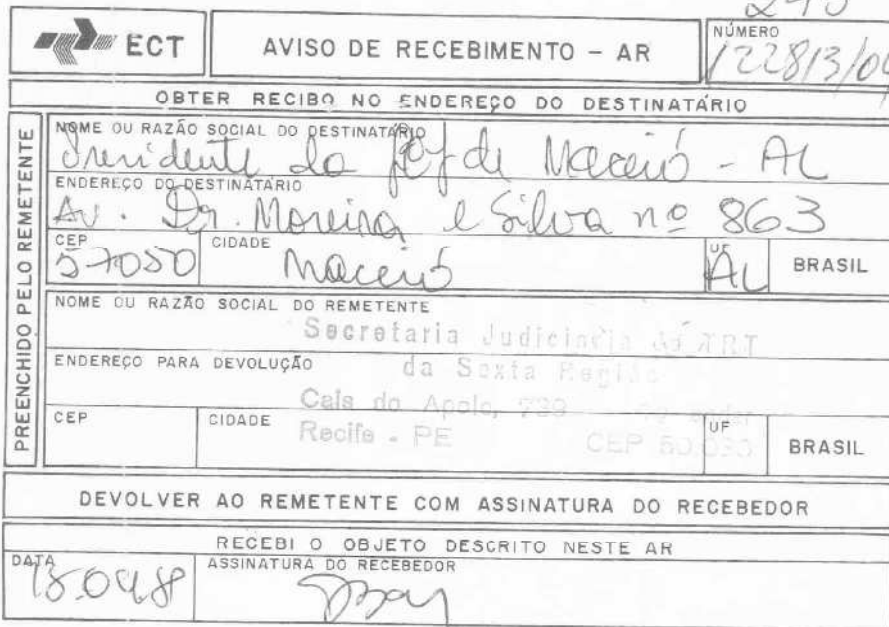 ECT
AVISO DE RECEBIMENTO - AR
NÚMERO
122813/04
OBTER RECIBO NO ENDEREÇO DO DESTINATÁRIO
PREENCHIDO PELO REMETENTE
NOME OU RAZÃO SOCIAL DO DESTINATÁRIO
Presidente da de Maceió - AL
ENDEREÇO DO DESTINATÁRIO
Av. Dr. Moreira e Silva nº 863
CEP
57050
CIDADE
Maceió
UF
AL
BRASIL
NOME OU RAZÃO SOCIAL DO REMETENTE
Secretaria Judiciária do TRT
da Sexta Região
ENDEREÇO PARA DEVOLUÇÃO
Cais do Apolo, 739 andar
Recife - PE CEP 50.030
CEP
CIDADE
UF
BRASIL
DEVOLVER AO REMETENTE COM ASSINATURA DO RECEBEDOR
RECEBI O OBJETO DESCRITO NESTE AR
DATA
ASSINATURA DO RECEBEDOR